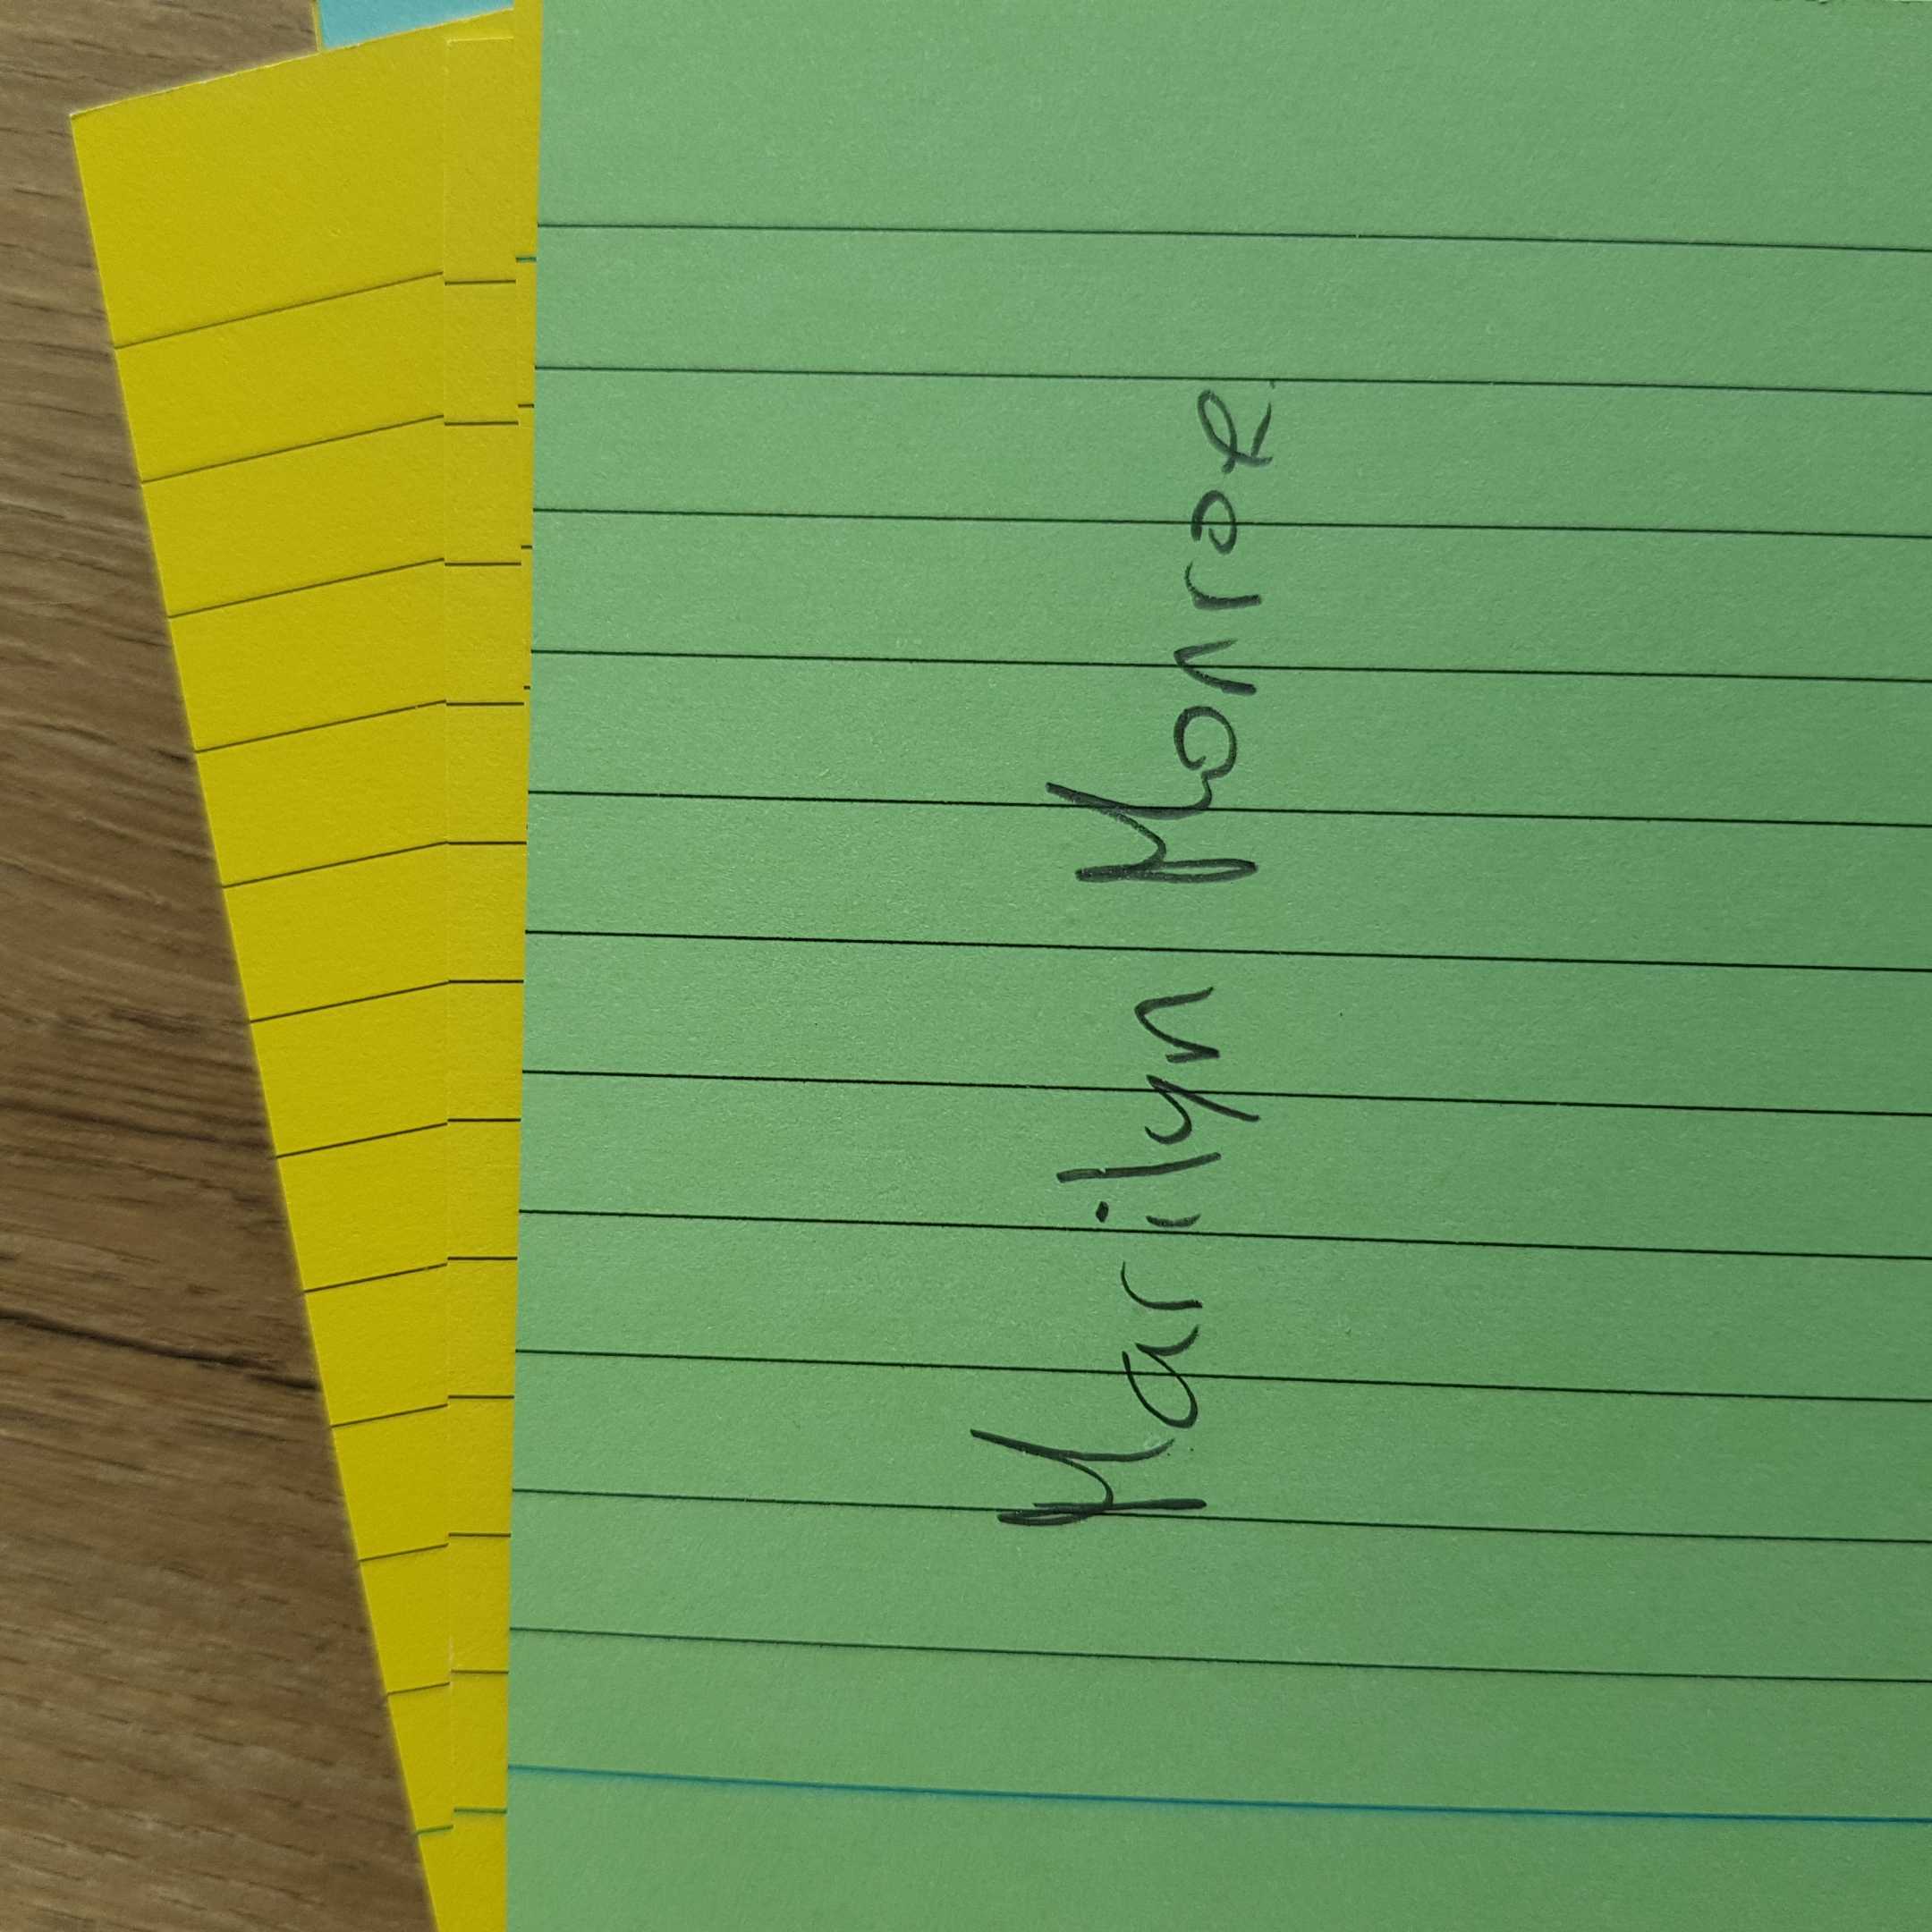 Marilyn Monroe